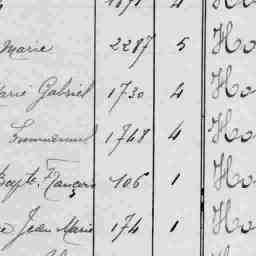 Marie 2287 5 Ho
Marie Gabriel 1730 4 Ho
Emmanuel 1748 4 Ho
Bapte. François 106 1 Ho
Jean Marie 174 1 Ho